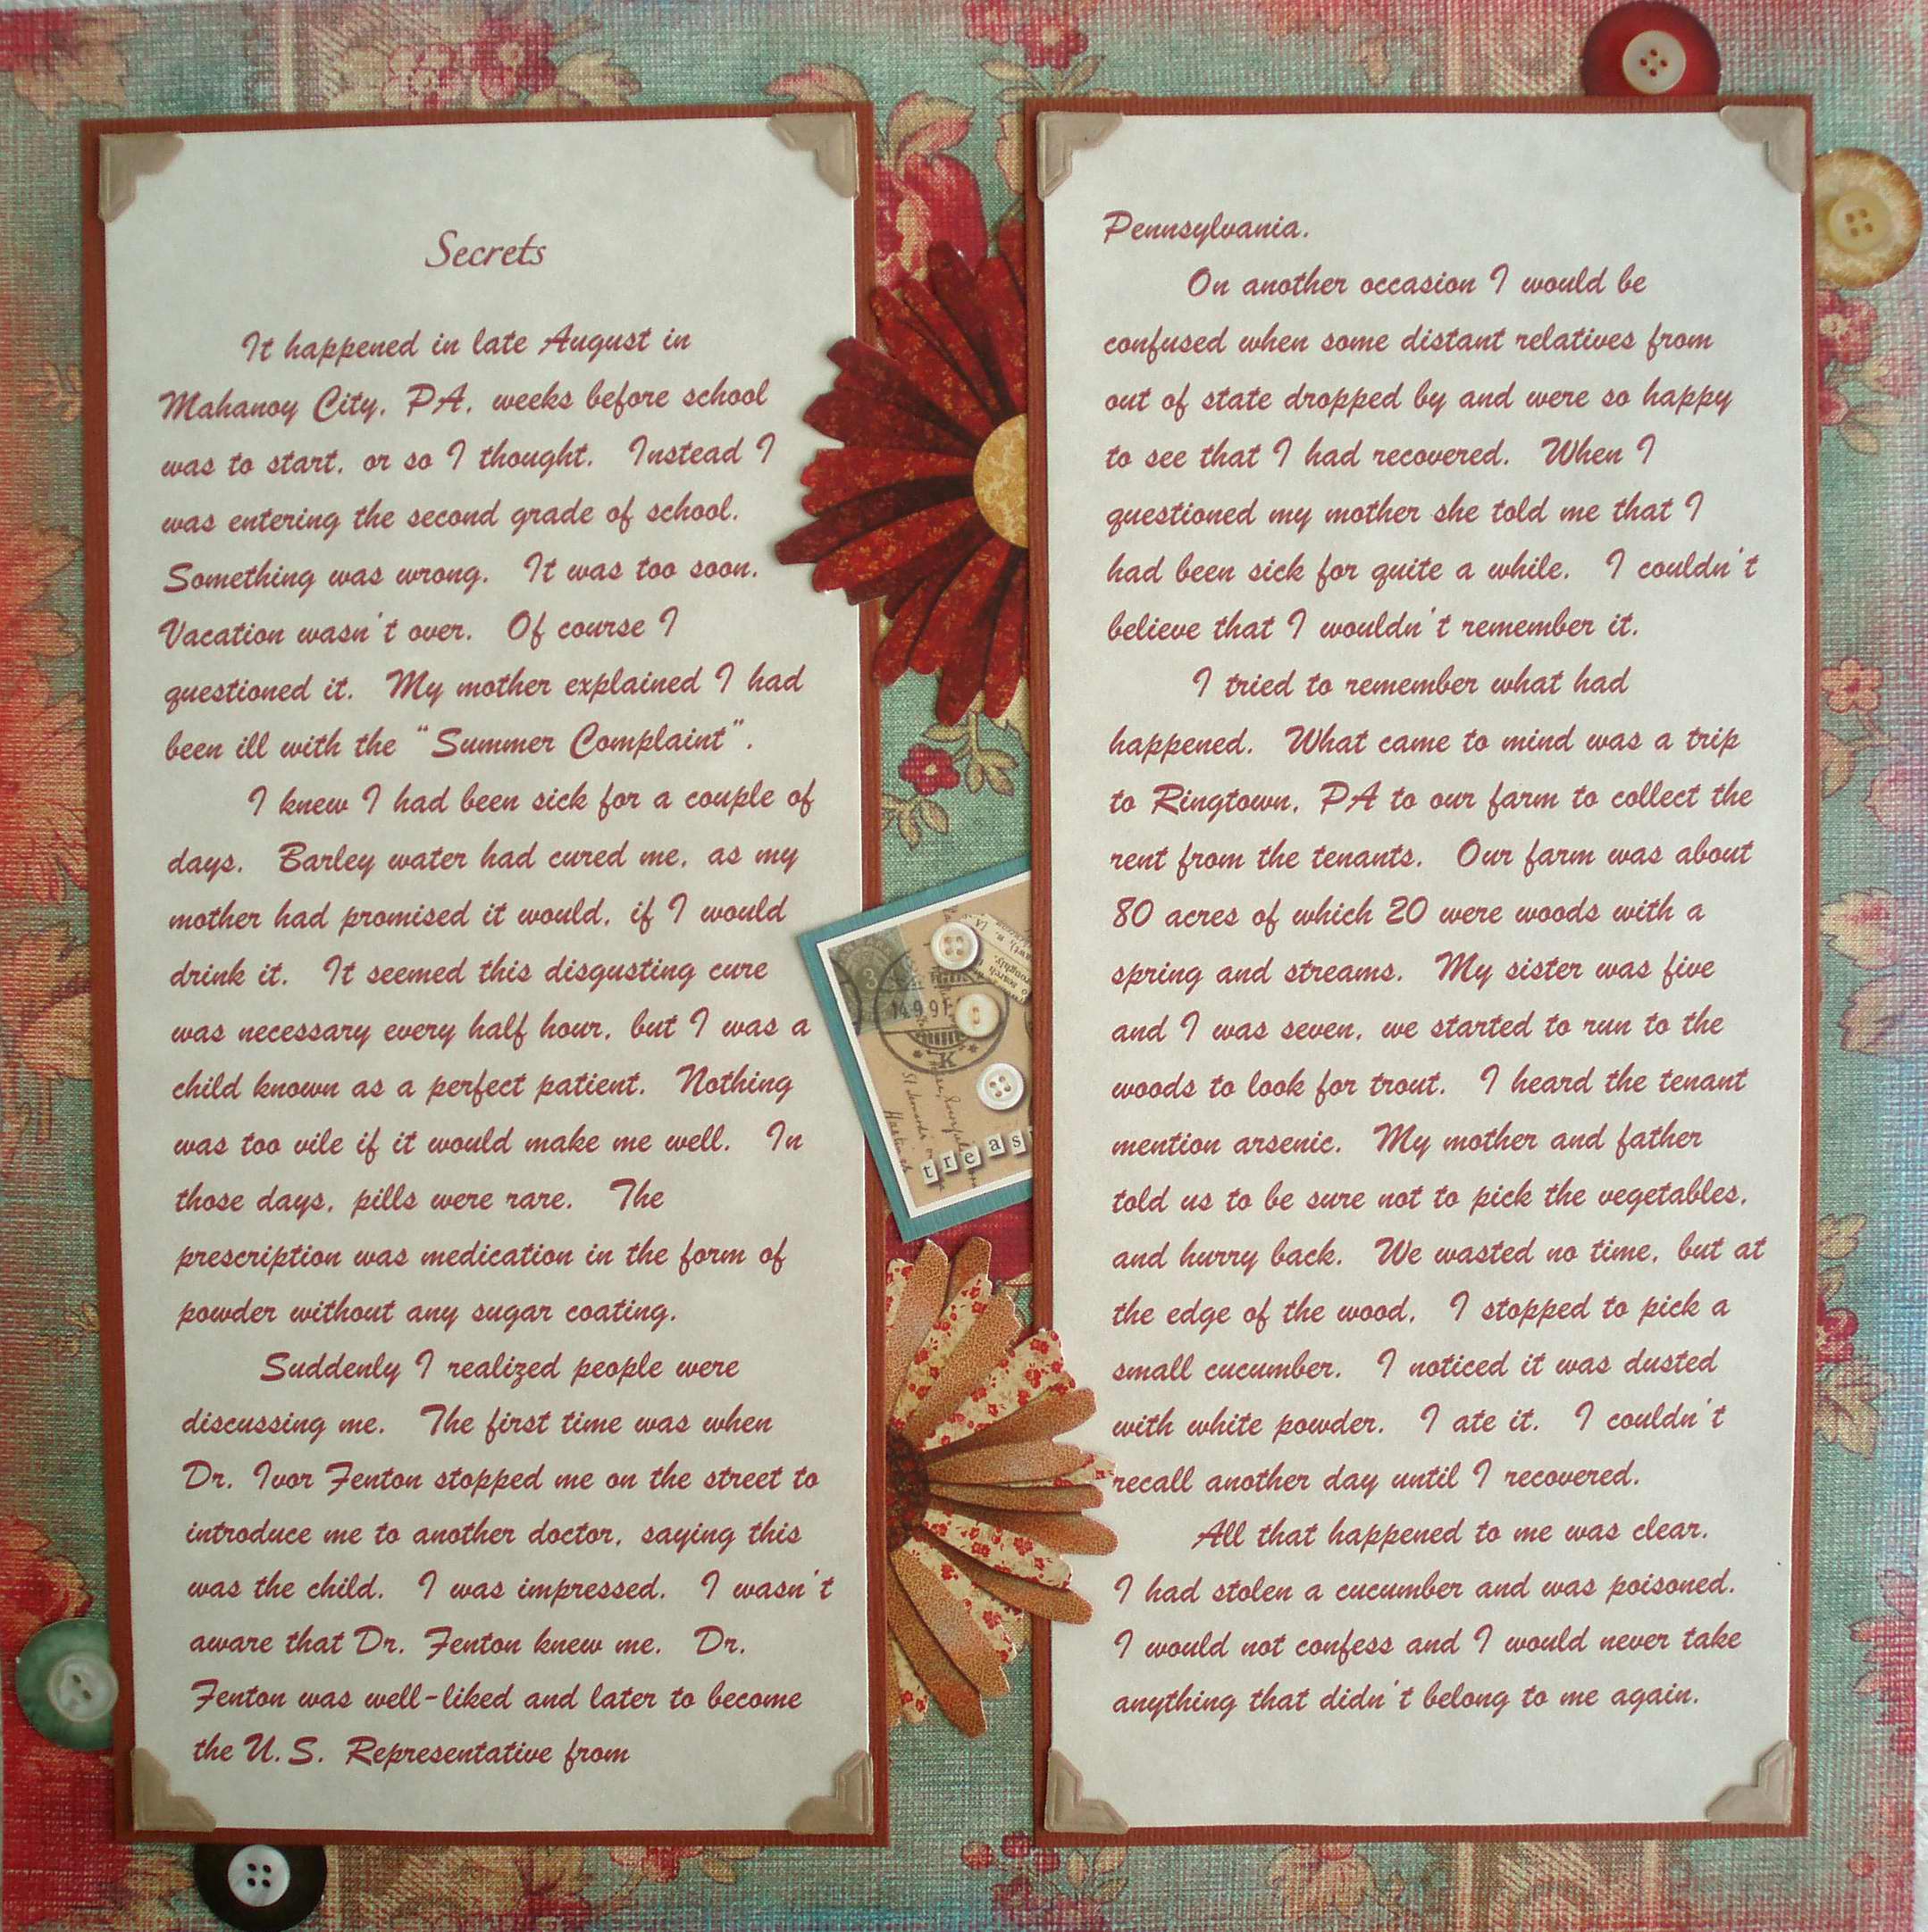 Secrets
It happened in late August in
Mahanoy City, PA, weeks before school
was to start, or so I thought. Instead I
was entering the second grade of school.
Something was wrong. It was too soon.
Vacation wasn't over. Of course I
questioned it. My mother explained I had
been ill with the "Summer Complaint".
I knew I had been sick for a couple of
days. Barley water had cured me, as my
mother had promised it would, if I would
drink it. It seemed this disgusting cure
was necessary every half hour, but I was a
child known as a perfect patient. Nothing
was too vile if it would make me well. In
those days, pills were rare. The
prescription was medication in the form of
powder without any sugar coating.
Suddenly I realized people were
discussing me. The first time was when
Dr. Ivor Fenton stopped me on the street to
introduce me to another doctor, saying this
was the child. I was impressed. I wasn't
aware that Dr. Fenton knew me. Dr.
Fenton was well-liked and later to become
the U.S. Representative from
3
14.9.91
K
treas
Pennsylvania.
On another occasion I would be
confused when some distant relatives from
out of state dropped by and were so happy
to see that I had recovered. When I
questioned my mother she told me that I
had been sick for quite a while. I couldn't
believe that I wouldn't remember it.
I tried to remember what had
happened. What came to mind was a trip
to Ringtown, PA to our farm to collect the
rent from the tenants. Our farm was about
80 acres of which 20 were woods with a
spring and streams. My sister was five
and I was seven, we started to run to the
woods to look for trout. I heard the tenant
mention arsenic. My mother and father
told us to be sure not to pick the vegetables,
and hurry back. We wasted no time, but at
the edge of the wood, I stopped to pick a
small cucumber. I noticed it was dusted
with white powder. I ate it. I couldn't
recall another day until I recovered.
All that happened to me was clear.
I had stolen a cucumber and was poisoned.
I would not confess and I would never take
anything that didn't belong to me again.